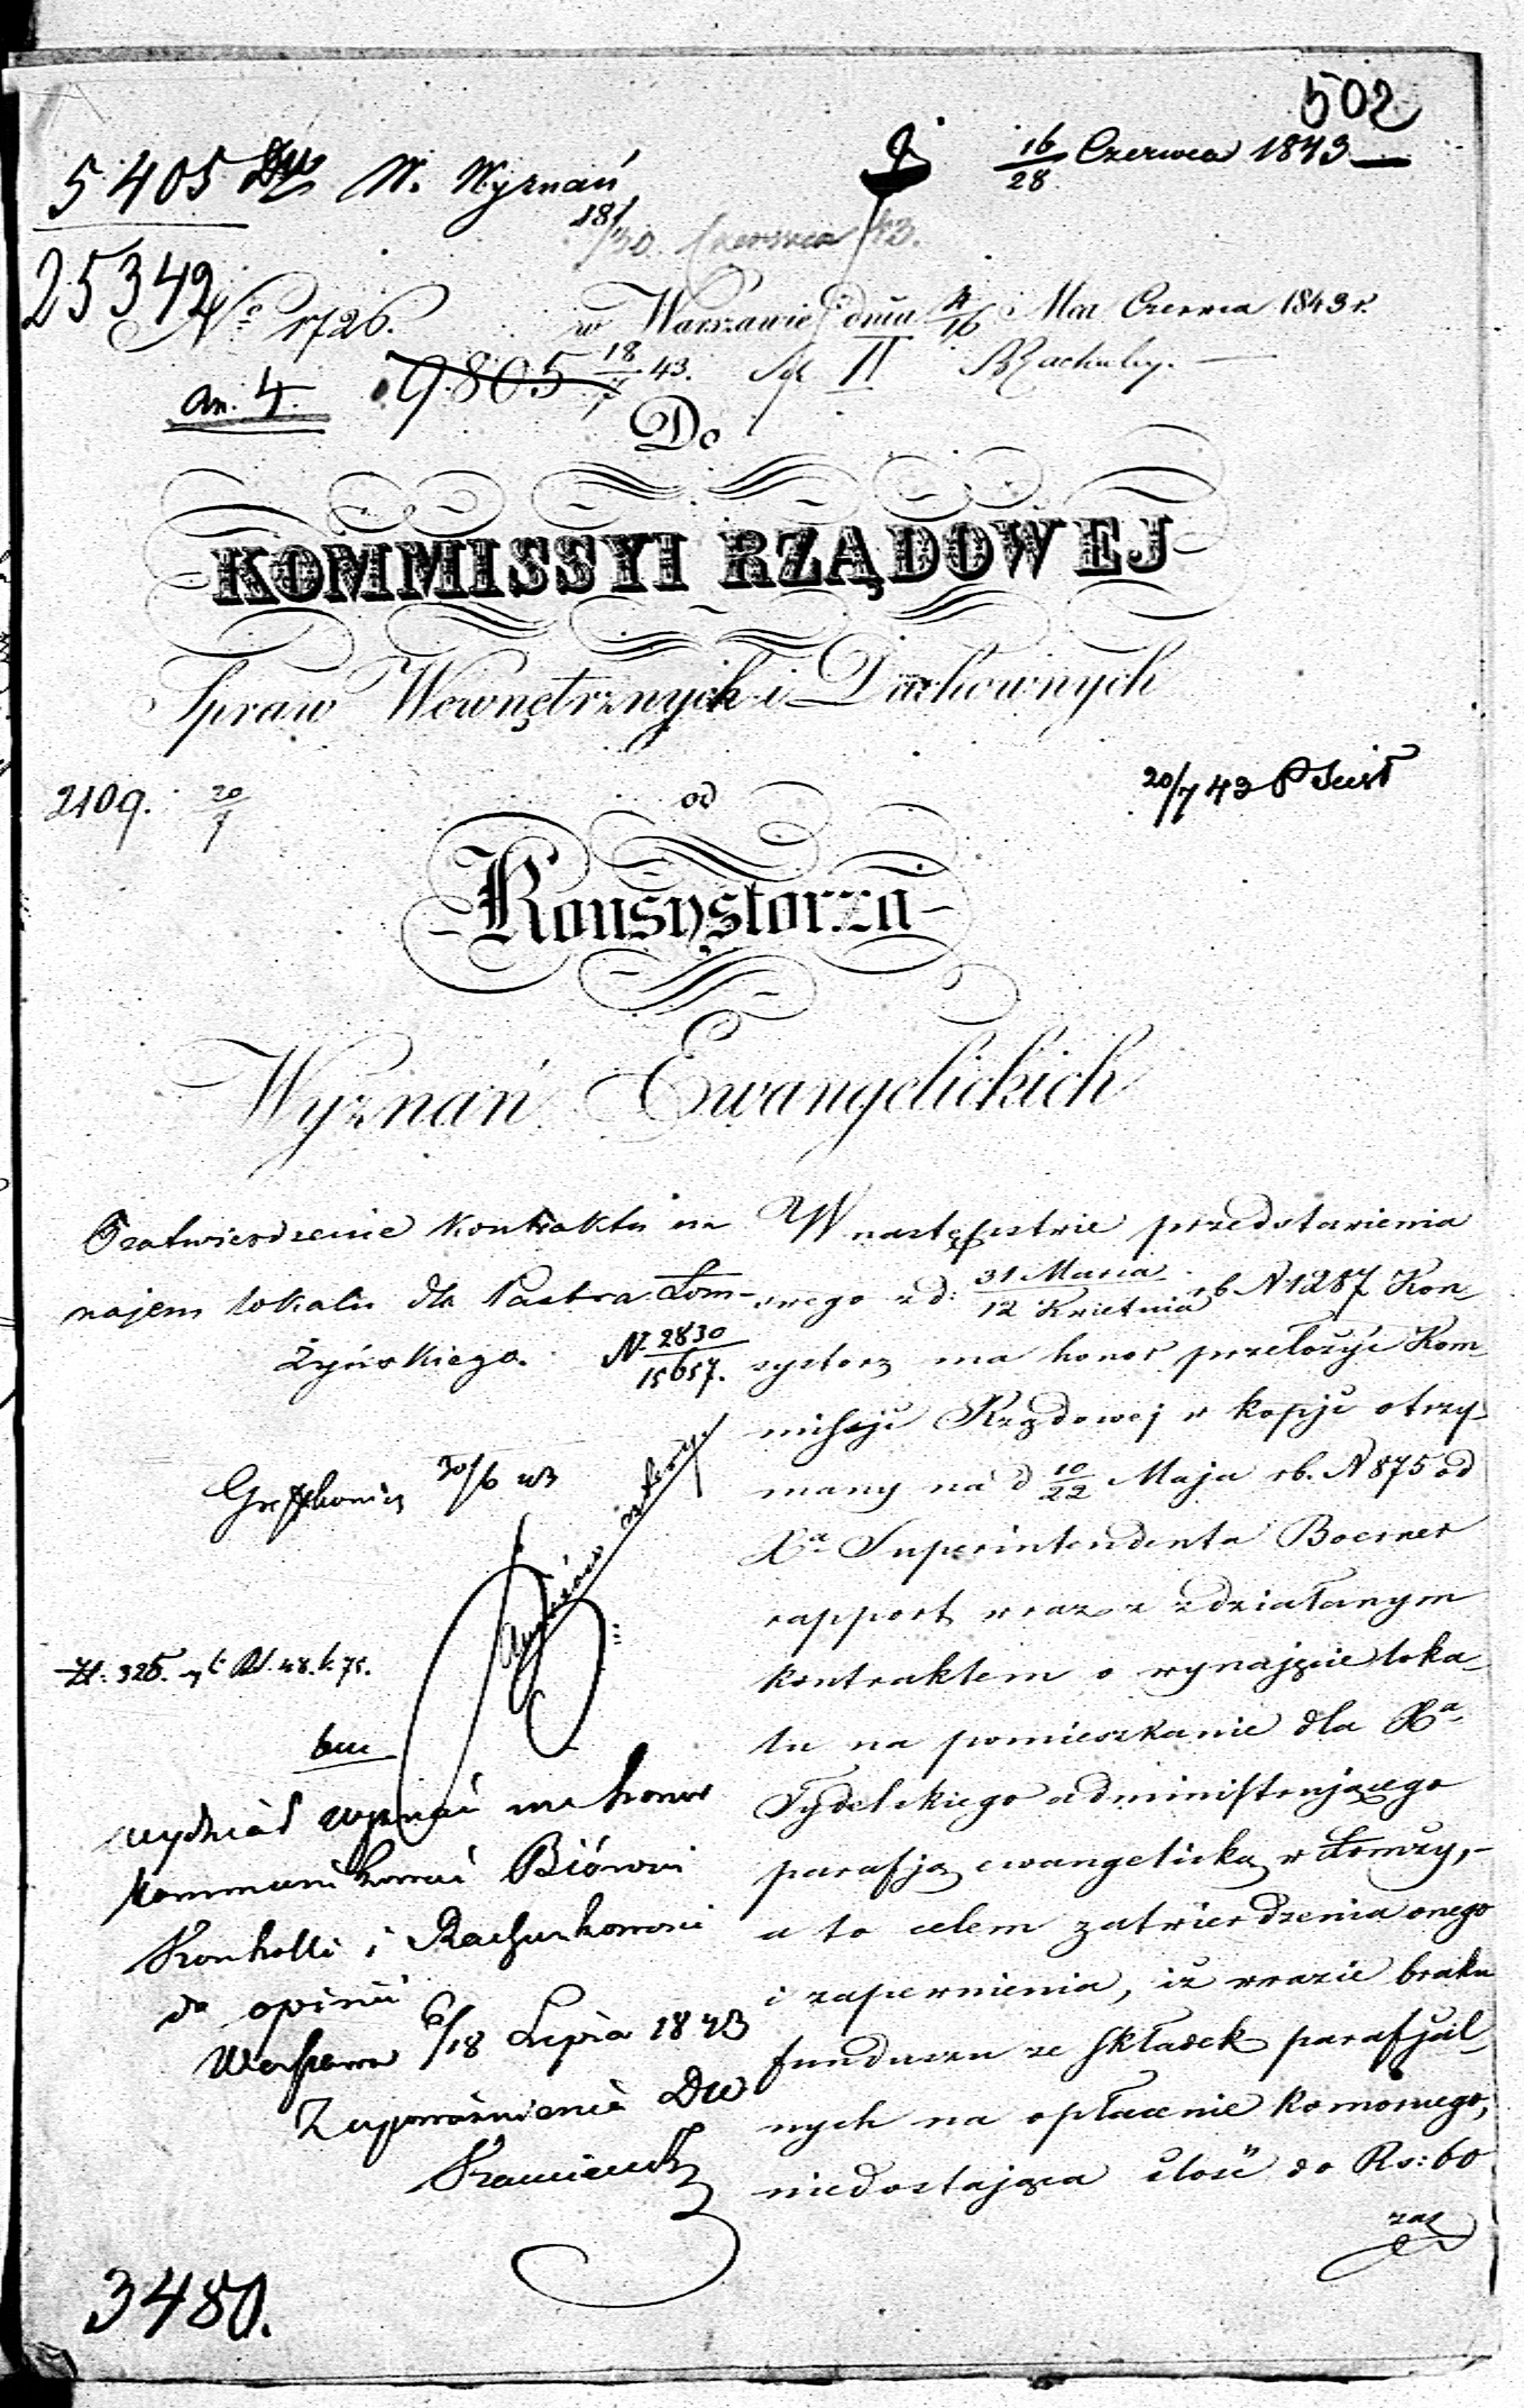 502
5405 W. Wyznań
16/28 Czerwca 1843
18/30. Czerwca 43.
25342
No 1726. w Warszawie dnia 4/16 Mca Czerwca 1843 r.
an. 4. 9805 18/7 43. II
Do
KOMMISSYI RZĄDOWEJ
Spraw Wewnętrznych i Duchownych
2109. 20/7
20/7 43
od
Konsystorza
Wyznań Ewangelickich
Zatwierdzenie Kontraktu na
najem lokalu dla Pastora Łom-
żyńskiego. N. 2830/15657.
30/6 43
Wydział wyznań ma honor
kommunikować Biórowi
Kontrolli i Rachunkowości
do opinii
Warszawa 6/18 Lipca 1843
Z upoważnienia
3480.
W następstwie przedstawienia
swego z d: 31 Marca/12 Kwietnia rb N 1287 Kon-
systorz ma honor przełożyć Kom-
missyi Rządowej w kopji otrzy-
many na d 10/22 Maja rb. N 875 od
Xa Superintendenta Boerner
rapport wraz z zdziałanym
kontraktem o wynajęcie loka-
lu na pomieszkanie dla Xa
Tydelskiego administrującego
parafją ewangelicką w Łomży,-
a to celem zatwierdzenia onego
i zapewnienia, iż w razie braku
funduszu ze składek parafjal-
nych na opłacenie komornego,
niedostająca ilość do Rs: 60